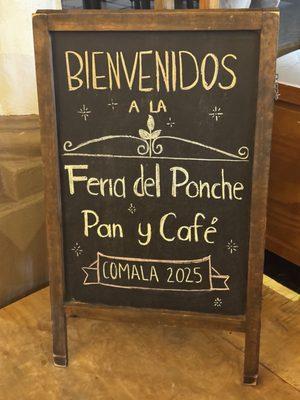 BIENVENIDOS
A LA
Feria del Ponche
Pan y Café
COMALA 2025